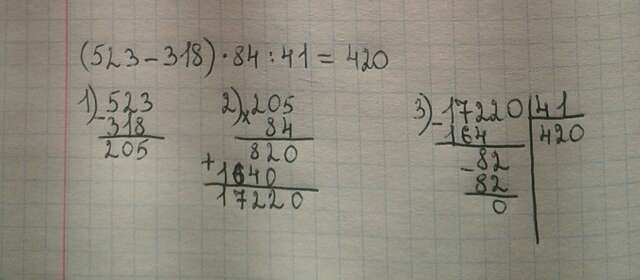 (523-318)·84:41=420
1) - 523
318
205
2) x 205
84
820
+ 1640
17220
3) - 17220 | 41
164 | 420
- 82
82
0